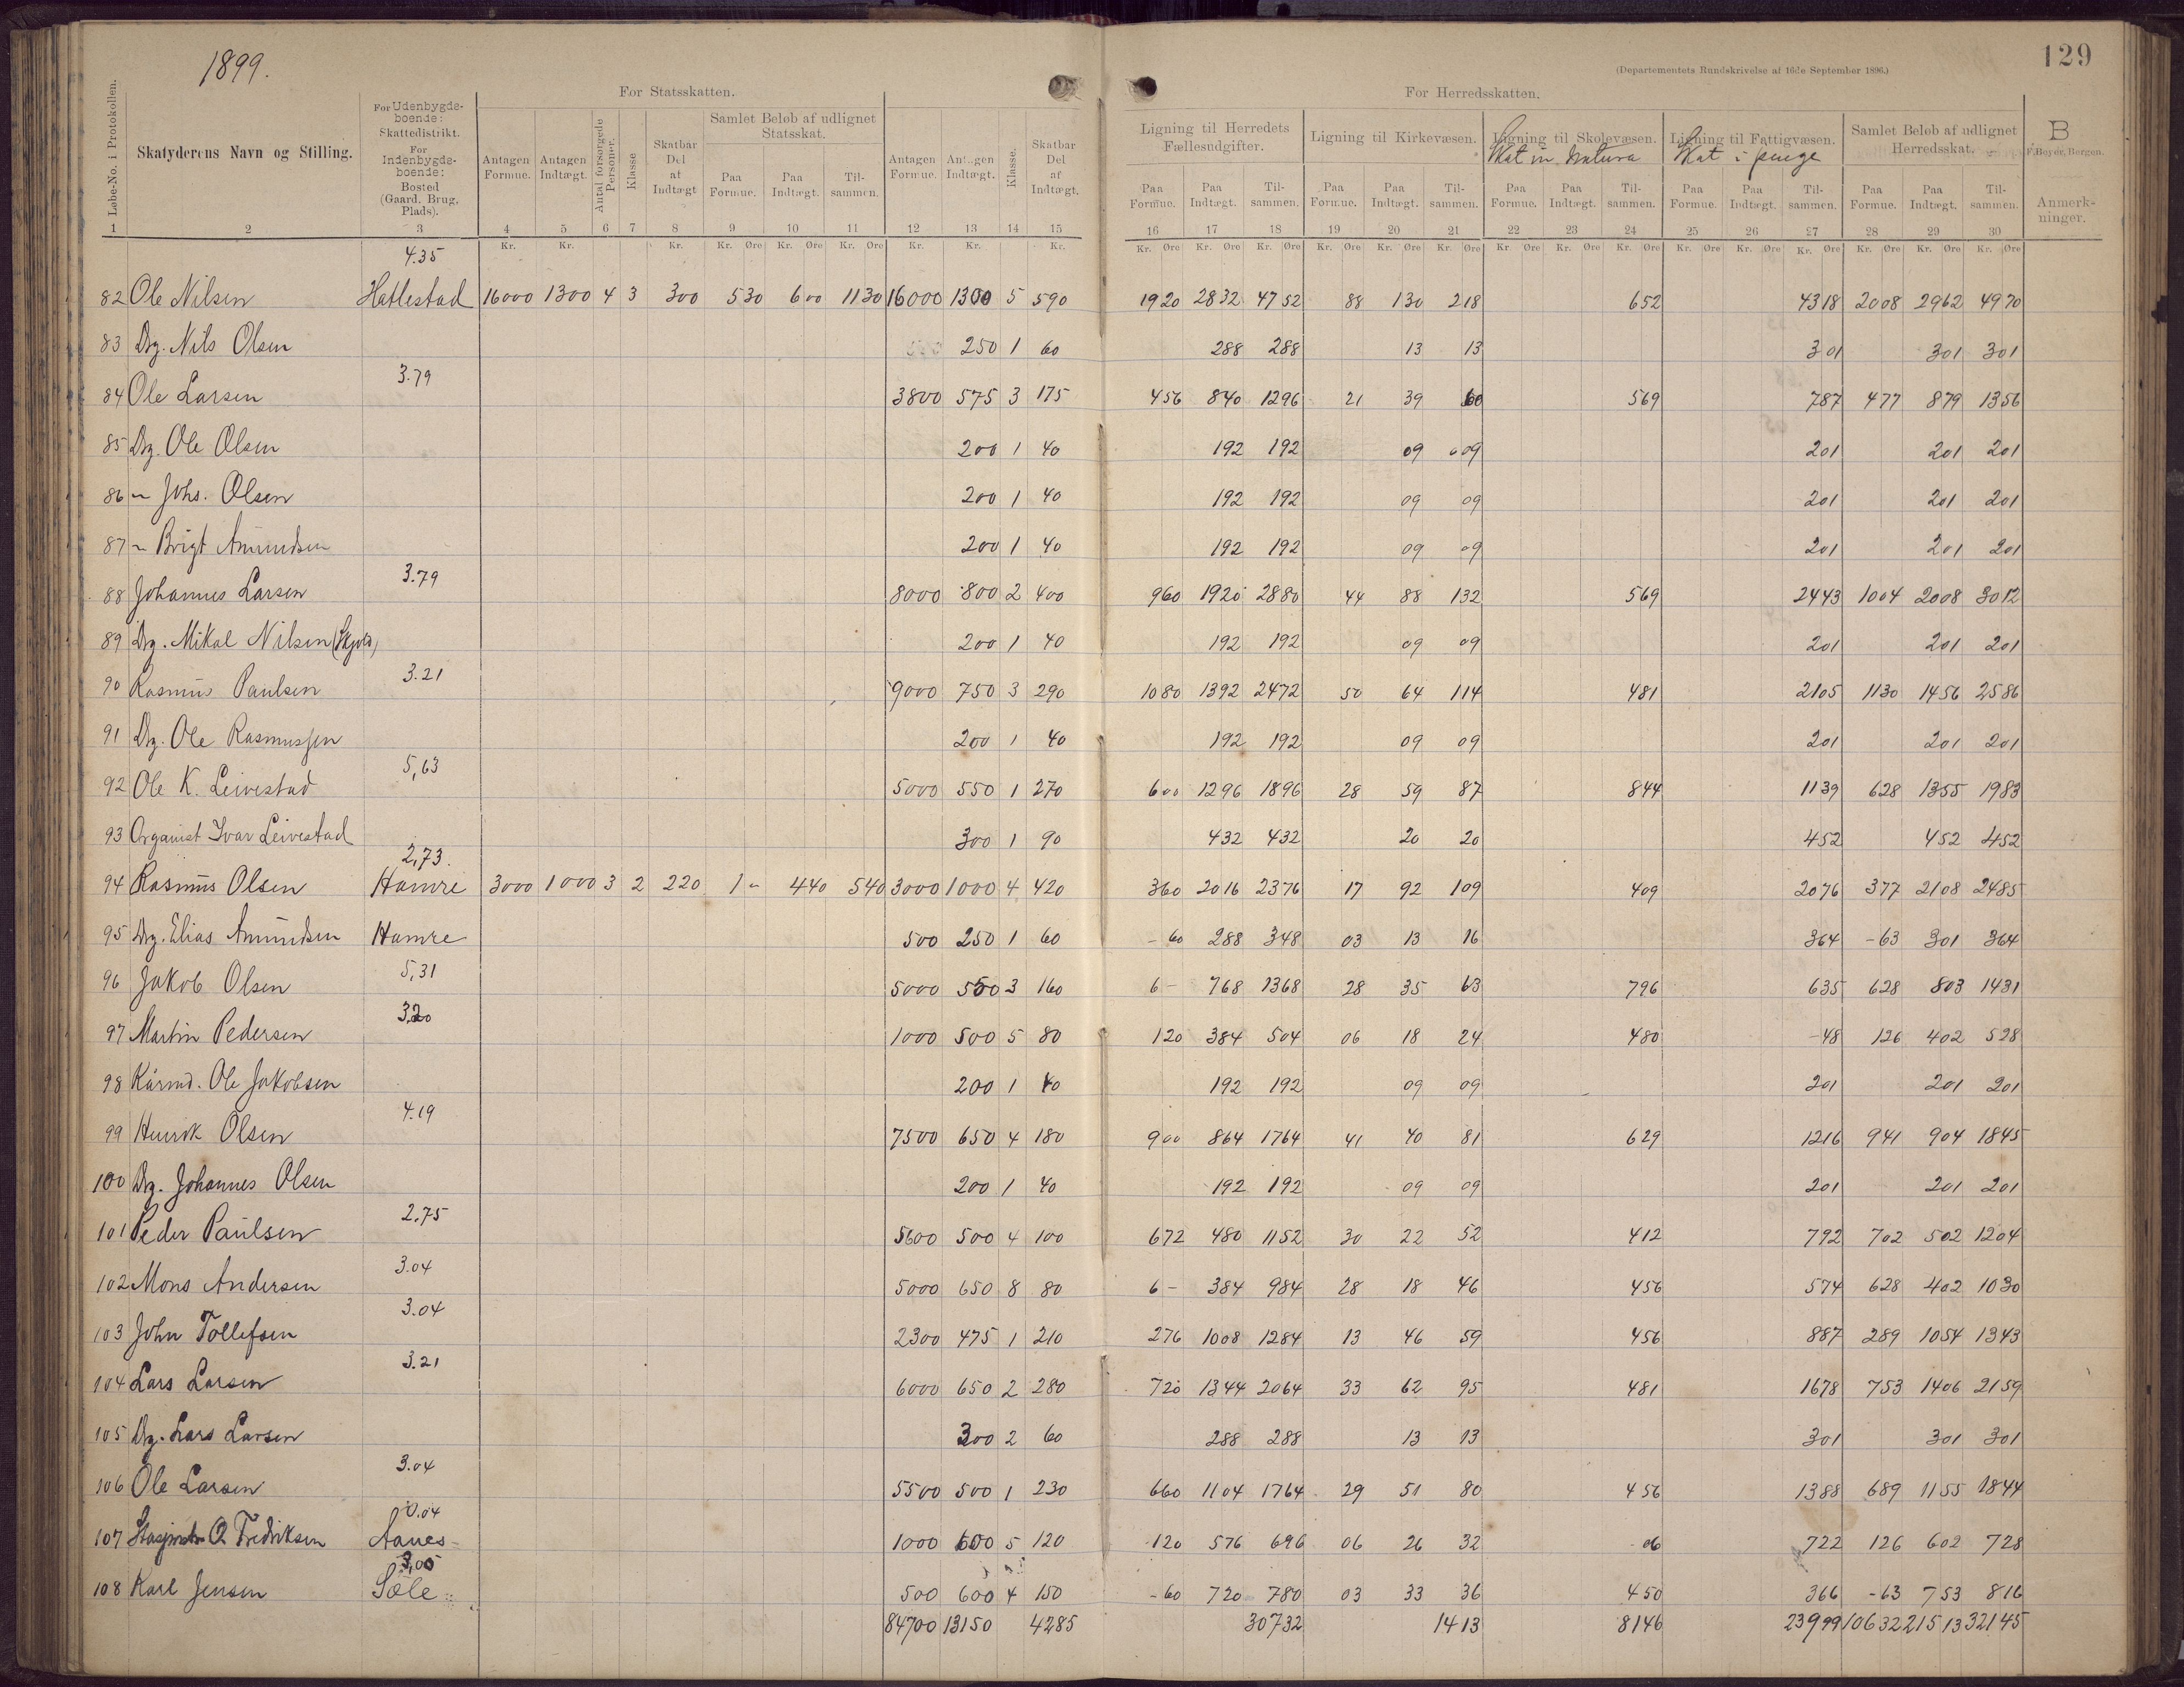 1899.
129
(Departementets Rundskrivelse af 16de September 1896.)
For Statsskatten.
For Herredsskatten.
Løbe-No. i Protokollen.
Skatyderens Navn og Stilling.
For Udenbygdeboende: Skattedistrikt. For Indenbygdeboende: Bosted (Gaard. Brug. Plads).
Antagen Formue.
Antagen Indtægt.
Antal forsørgede Personer.
Klasse
Skatbar Del af Indtægt
Samlet Beløb af udlignet Statsskat.
Paa Formue. Paa Indtægt. Tilsammen.
Antagen Formue.
Antagen Indtægt.
Klasse.
Skatbar Del af Indtægt.
Ligning til Herredets Fællesudgifter.
Ligning til Kirkevæsen.
Ligning til Skolevæsen.
Skat in natura
Ligning til Fattigvæsen.
Skat i penge
Samlet Beløb af udlignet Herredsskat.
B
F. Beyer, Bergen.
Paa Formue. Paa Indtægt. Tilsammen. Paa Formue. Paa Indtægt. Tilsammen. Paa Formue. Paa Indtægt. Tilsammen. Paa Formue. Paa Indtægt. Tilsammen. Paa Formue. Paa Indtægt. Tilsammen.
Anmerkninger.
1 2 3 4 5 6 7 8 9 10 11 12 13 14 15 16 17 18 19 20 21 22 23 24 25 26 27 28 29 30
Kr. Kr. Kr. Kr. Øre Kr. Øre Kr. Øre Kr. Kr. Kr. Kr. Øre Kr. Øre Kr. Øre Kr. Øre Kr. Øre Kr. Øre Kr. Øre Kr. Øre Kr. Øre Kr. Øre Kr. Øre Kr. Øre Kr. Øre Kr. Øre Kr. Øre
4.35
82 Ole Nilsen Hatlestad 16000 1300 4 3 300 530 600 1130 16000 1300 5 590 1920 2832 4752 88 130 218 652 4318 2008 2962 4970
83 Drg. Nils Olsen 250 1 60 288 288 13 13 301 301 301
3.79
84 Ole Larsen 3800 575 3 175 456 840 1296 21 39 60 569 787 477 879 1356
85 Drg. Ole Olsen 200 1 40 192 192 09 009 201 201 201
86 " Johs. Olsen 200 1 40 192 192 09 09 201 201 201
87 " Brigt Amundsen 200 1 40 192 192 09 09 201 201 201
3.79
88 Johannes Larsen 8000 800 2 400 960 1920 2880 44 88 132 569 2443 1004 2008 3012
89 Drg. Mikal Nilsen (Skjold) 200 1 40 192 192 09 09 201 201 201
3.21
90 Rasmus Paulsen 9000 750 3 290 1080 1392 2472 50 64 114 481 2105 1130 1456 2586
91 Drg. Ole Rasmussen 200 1 40 192 192 09 09 201 201 201
5,63
92 Ole K. Leivestad 5000 550 1 270 600 1296 1896 28 59 87 844 1139 628 1355 1983
93 Organist Ivar Leivestad 300 1 90 432 432 20 20 452 452 452
2,73.
94 Rasmus Olsen Hamre 3000 1000 3 2 220 1 " 440 540 3000 1000 4 420 360 2016 2376 17 92 109 409 2076 377 2108 2485
95 Drg. Elias Amundsen Hamre 500 250 1 60 - 60 288 348 03 13 16 364 -63 301 364
5,31
96 Jakob Olsen 5000 550 3 160 6 - 768 1368 28 35 63 796 635 628 803 1431
3,20
97 Martin Pedersen 1000 500 5 80 120 384 504 06 18 24 480 -48 126 402 528
98 Kårmd. Ole Jakobsen 200 1 40 192 192 09 09 201 201 201
4.19
99 Henrik Olsen 7500 650 4 180 900 864 1764 41 40 81 629 1216 941 904 1845
100 Drg. Johannes Olsen 200 1 40 192 192 09 09 201 201 201
2.75
101 Peder Paulsen 5600 500 4 100 672 480 1152 30 22 52 412 792 702 502 1204
3.04
102 Mons Andersen 5000 650 8 80 6 - 384 984 28 18 46 456 574 628 402 1030
3.04
103 John Tollefsen 2300 475 1 210 276 1008 1284 13 46 59 456 887 289 1054 1343
3.21
104 Lars Larsen 6000 650 2 280 720 1344 2064 33 62 95 481 1678 753 1406 2159
105 Drg. Lars Larsen 300 2 60 288 288 13 13 301 301 301
3.04
106 Ole Larsen 5500 500 1 230 660 1104 1764 29 51 80 456 1388 689 1155 1844
0.04
107 O Fredriksen Aanes 1000 600 5 120 120 576 696 06 26 32 06 722 126 602 728
3,00
108 Karl Jensen Sæle 500 600 4 150 -60 720 780 03 33 36 450 366 -63 753 816
84700 13150 4285 30732 1413 8146 23999 10632 21513 32145